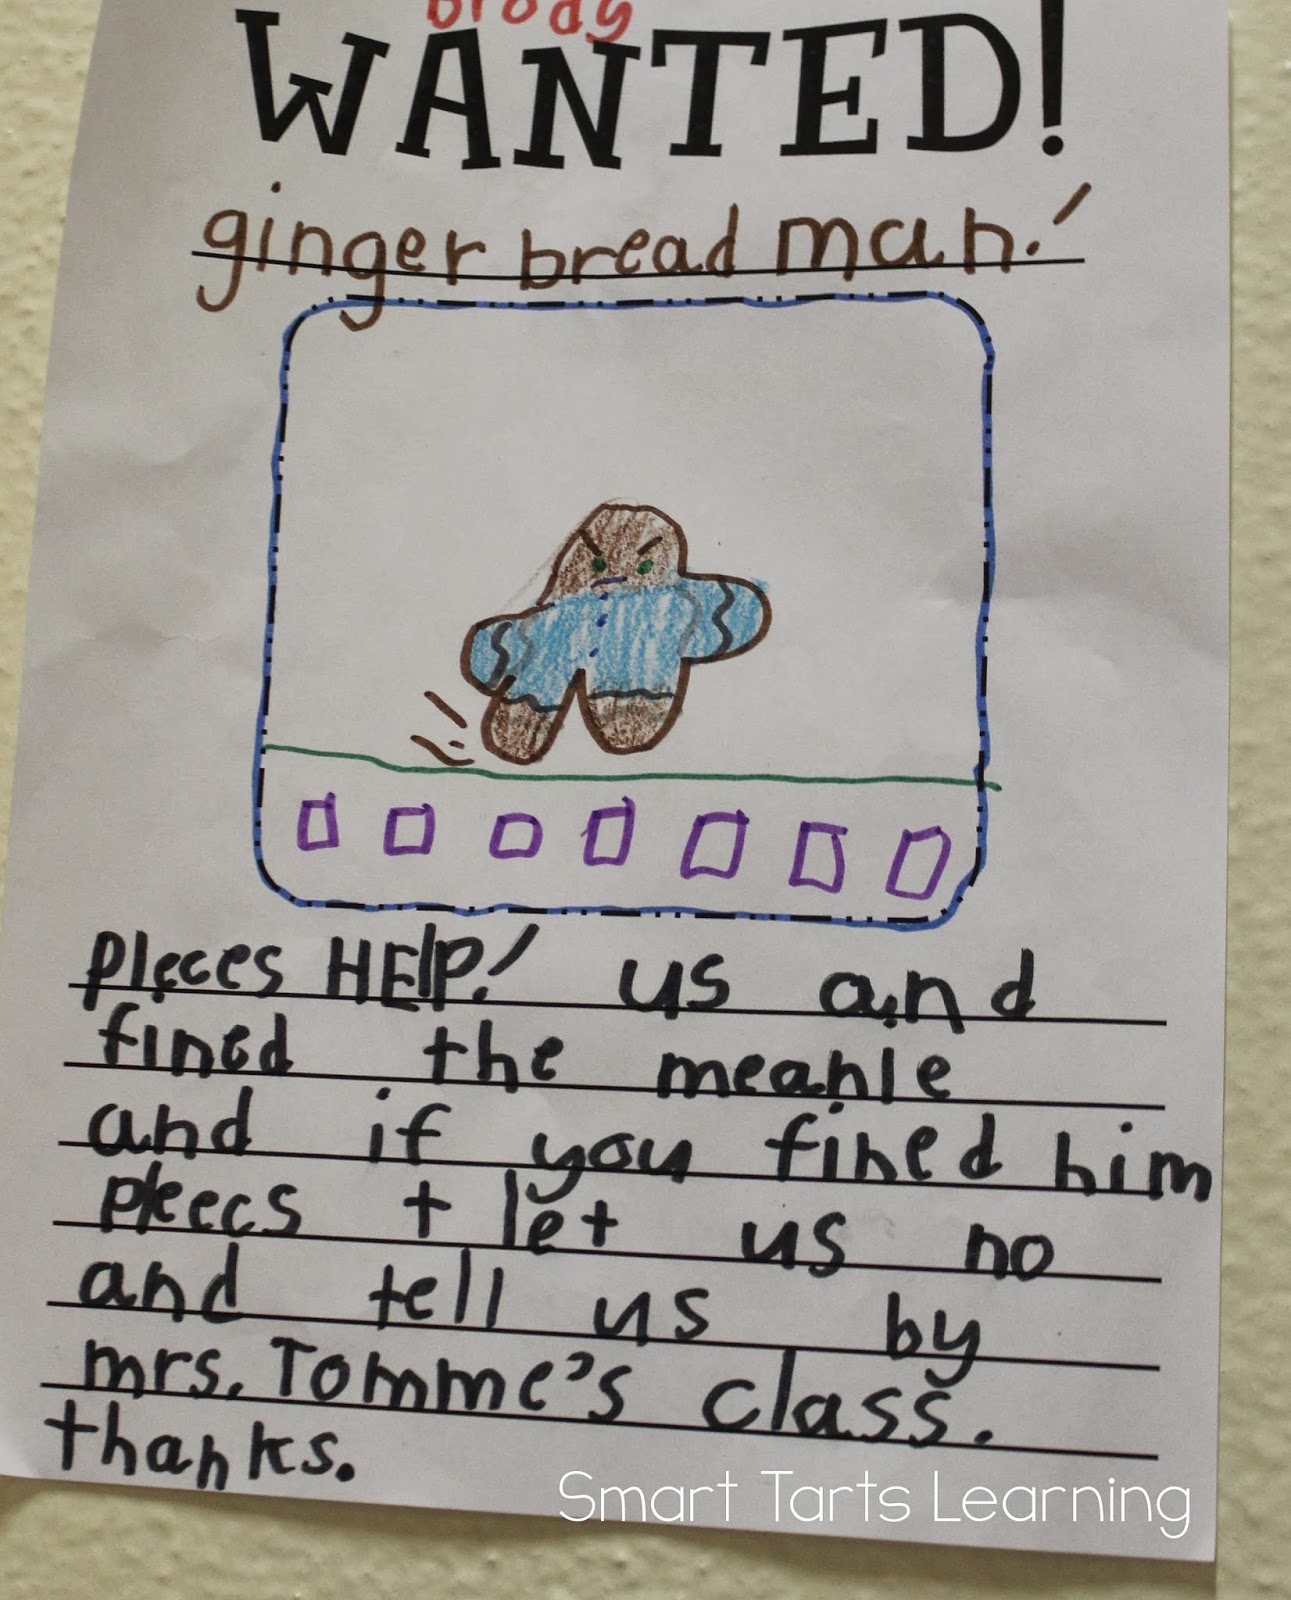 brody
WANTED!
ginger bread man!
pleces HELP! us and
fined the meanie
and if you fined him
pleecs t let us no
and tell us by
mrs. Tomme's class.
thanks.
Smart Tarts Learning